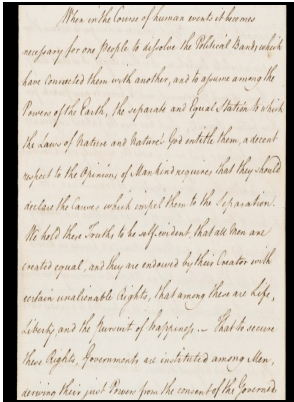 When in the Course of human events it becomes
necessary for one People to dissolve the Political Bands which
have Connected them with another, and to assume among the
Powers of the Earth, the separate and Equal Station to which
the Laws of Nature and Nature's God entitle them, a decent
respect to the Opinions of Mankind requires that they should
declare the Causes which impel them to the Separation.
We hold these Truths to be self evident, that all Men are
created equal, and they are endowed by their Creator with
certain unalienable Rights, that among these are Life,
Liberty and the Pursuit of Happiness. — That to secure
these Rights, Governments are instituted among Men,
deriving their just Powers from the consent of the Governed